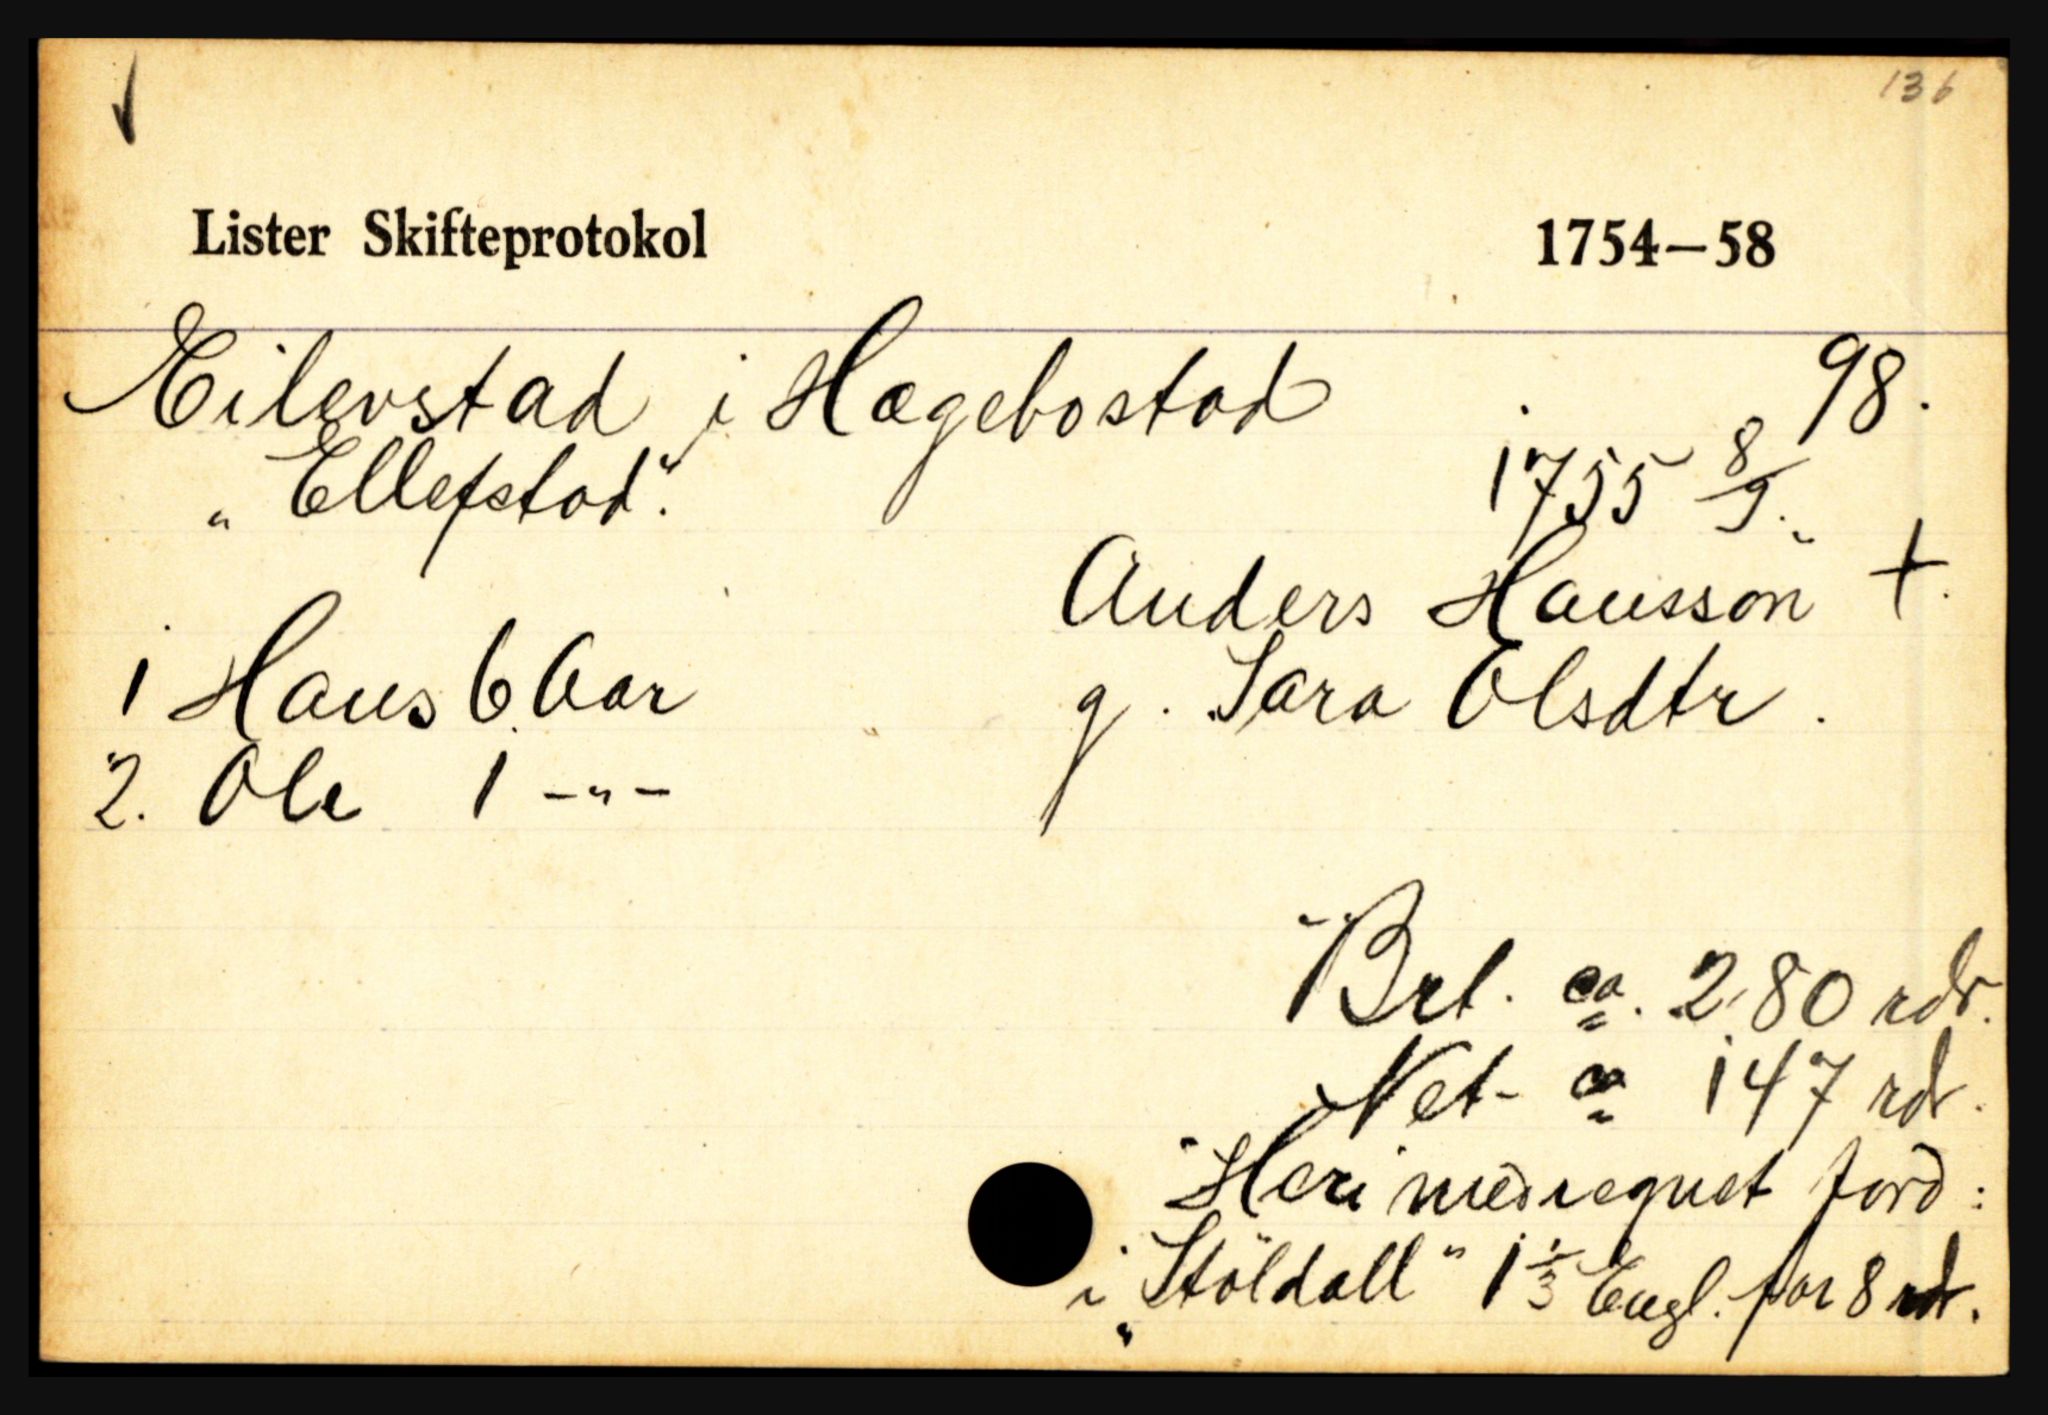 136
Lister Skifteprotokol 1754—58
Eilevstad i Hægebostad 98.
"Ellefstad". 1755 8/9.
Anders Hansson +.
1 Hans 6 Aar g. Sara Olsdtr.
2. Ole 1 -"-
Brt. ca. 280 rdr.
Net- ca 147 rdr.
Heri medregnet jord:
i "Stöldall" 1 1/3 Engl. for 8 rdr.